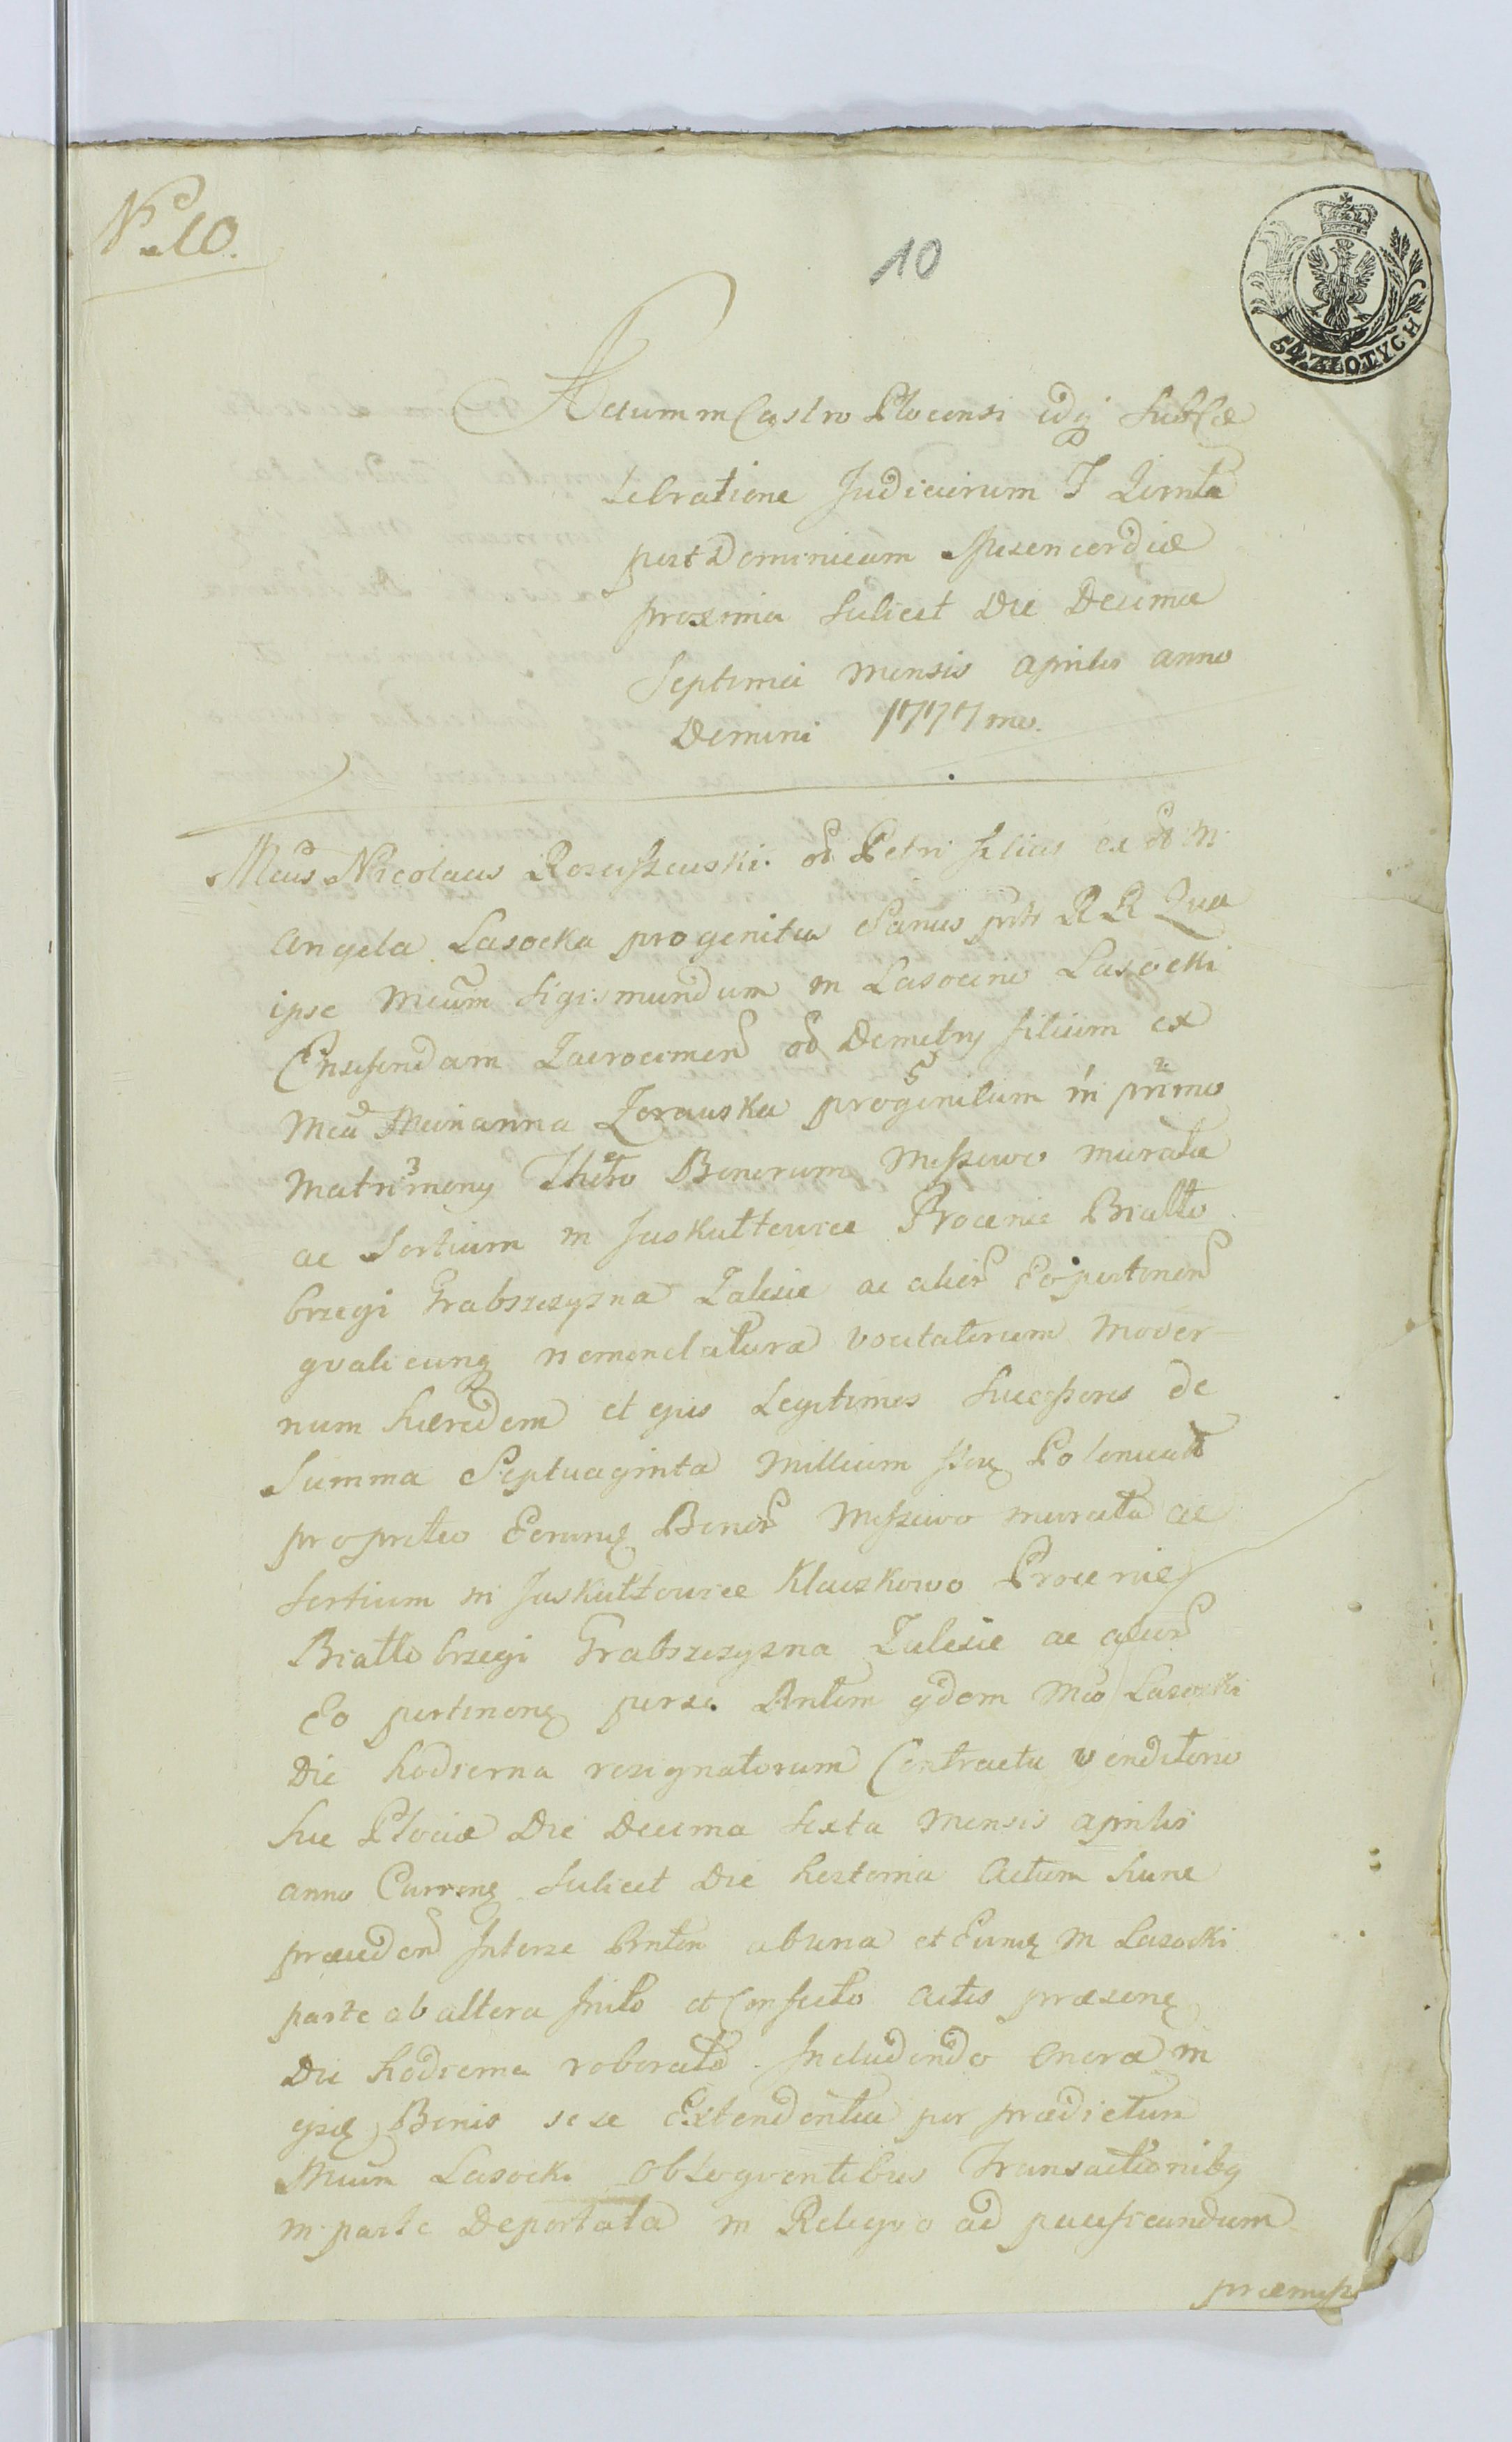 No 10.
10
54 ZŁOTYCH
Actum in Castro Plocensi idq sub Ce
lebratione Judiciorum F
post Dominicam Misericordiæ
proxima scilicet Die Decima
Septima mensis Aprilis anno
Domini 1777mo.
Mcus Nicolaus Rosciszewski. od Petri filius ex od M.
Angela Lasocka progenitus Sanus RR Qua
ipse Mcum Sigismundum in Lasocino Lasocki
Ensiferidam Zacrocimen od Demetry filium ex
Mca Marianna Zorawska progenitum in primo
Matrimony Bonorum Miszewo murata
ac Sortium in Juskułtowice Procenie Białło
brzegi Grabszczyzna Zalesie ac alior Eo pertinen
qualicunq nomenclatura vocitatorum Moder-
num hæredem et ejus Legitimos Successores de
Summa Septuaginta Millium flor Polonical
pro pretio Eorunq Bonor Miszewo murata ac
Sortium in Juskułtowice Klaczkowo Procenie
Białłobrzegi Grabszczyzna Zalesie ac alior
Eo pertinenq per se. Rntem eidem Mco Lasocki
Die hodierna resignatorum Contractu venditorio
hic Plociæ Die Decima Sexta Mensis Aprilis
anno Currenq scilicet Die hesterna Actum hunc
præceden Inter se Rntem ab una et Eunq M Lasocki
parte ab altera Inito et Confecto Actis præsenq
Die hodierna roborato. Includendo Onera in
ejsq Bonis sese Extendentia per prædictum
Mcum Lasocki Obloquentibus Transactionibq
in parte Deportata in Reliquo ad pacificandum
præmiss